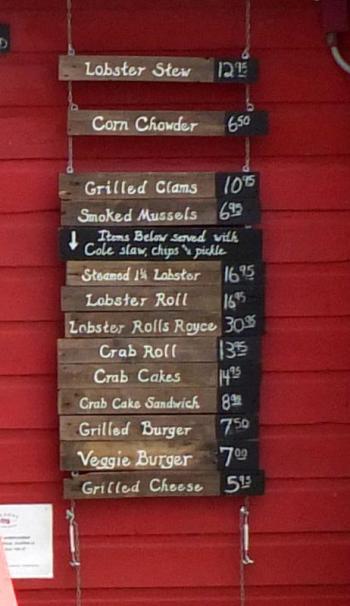 Lobster Stew 12 95
Corn Chowder 6 50
Grilled Clams 10 95
Smoked Mussels 6 95
↓ Items Below served with
Cole slaw, chips & pickle
Steamed 1¼ Lobster 16 95
Lobster Roll 16 95
Lobster Rolls Royce 30 95
Crab Roll 13 95
Crab Cakes 14 95
Crab Cake Sandwich
Grilled Burger 7 50
Veggie Burger 7 00
Grilled Cheese 5 95